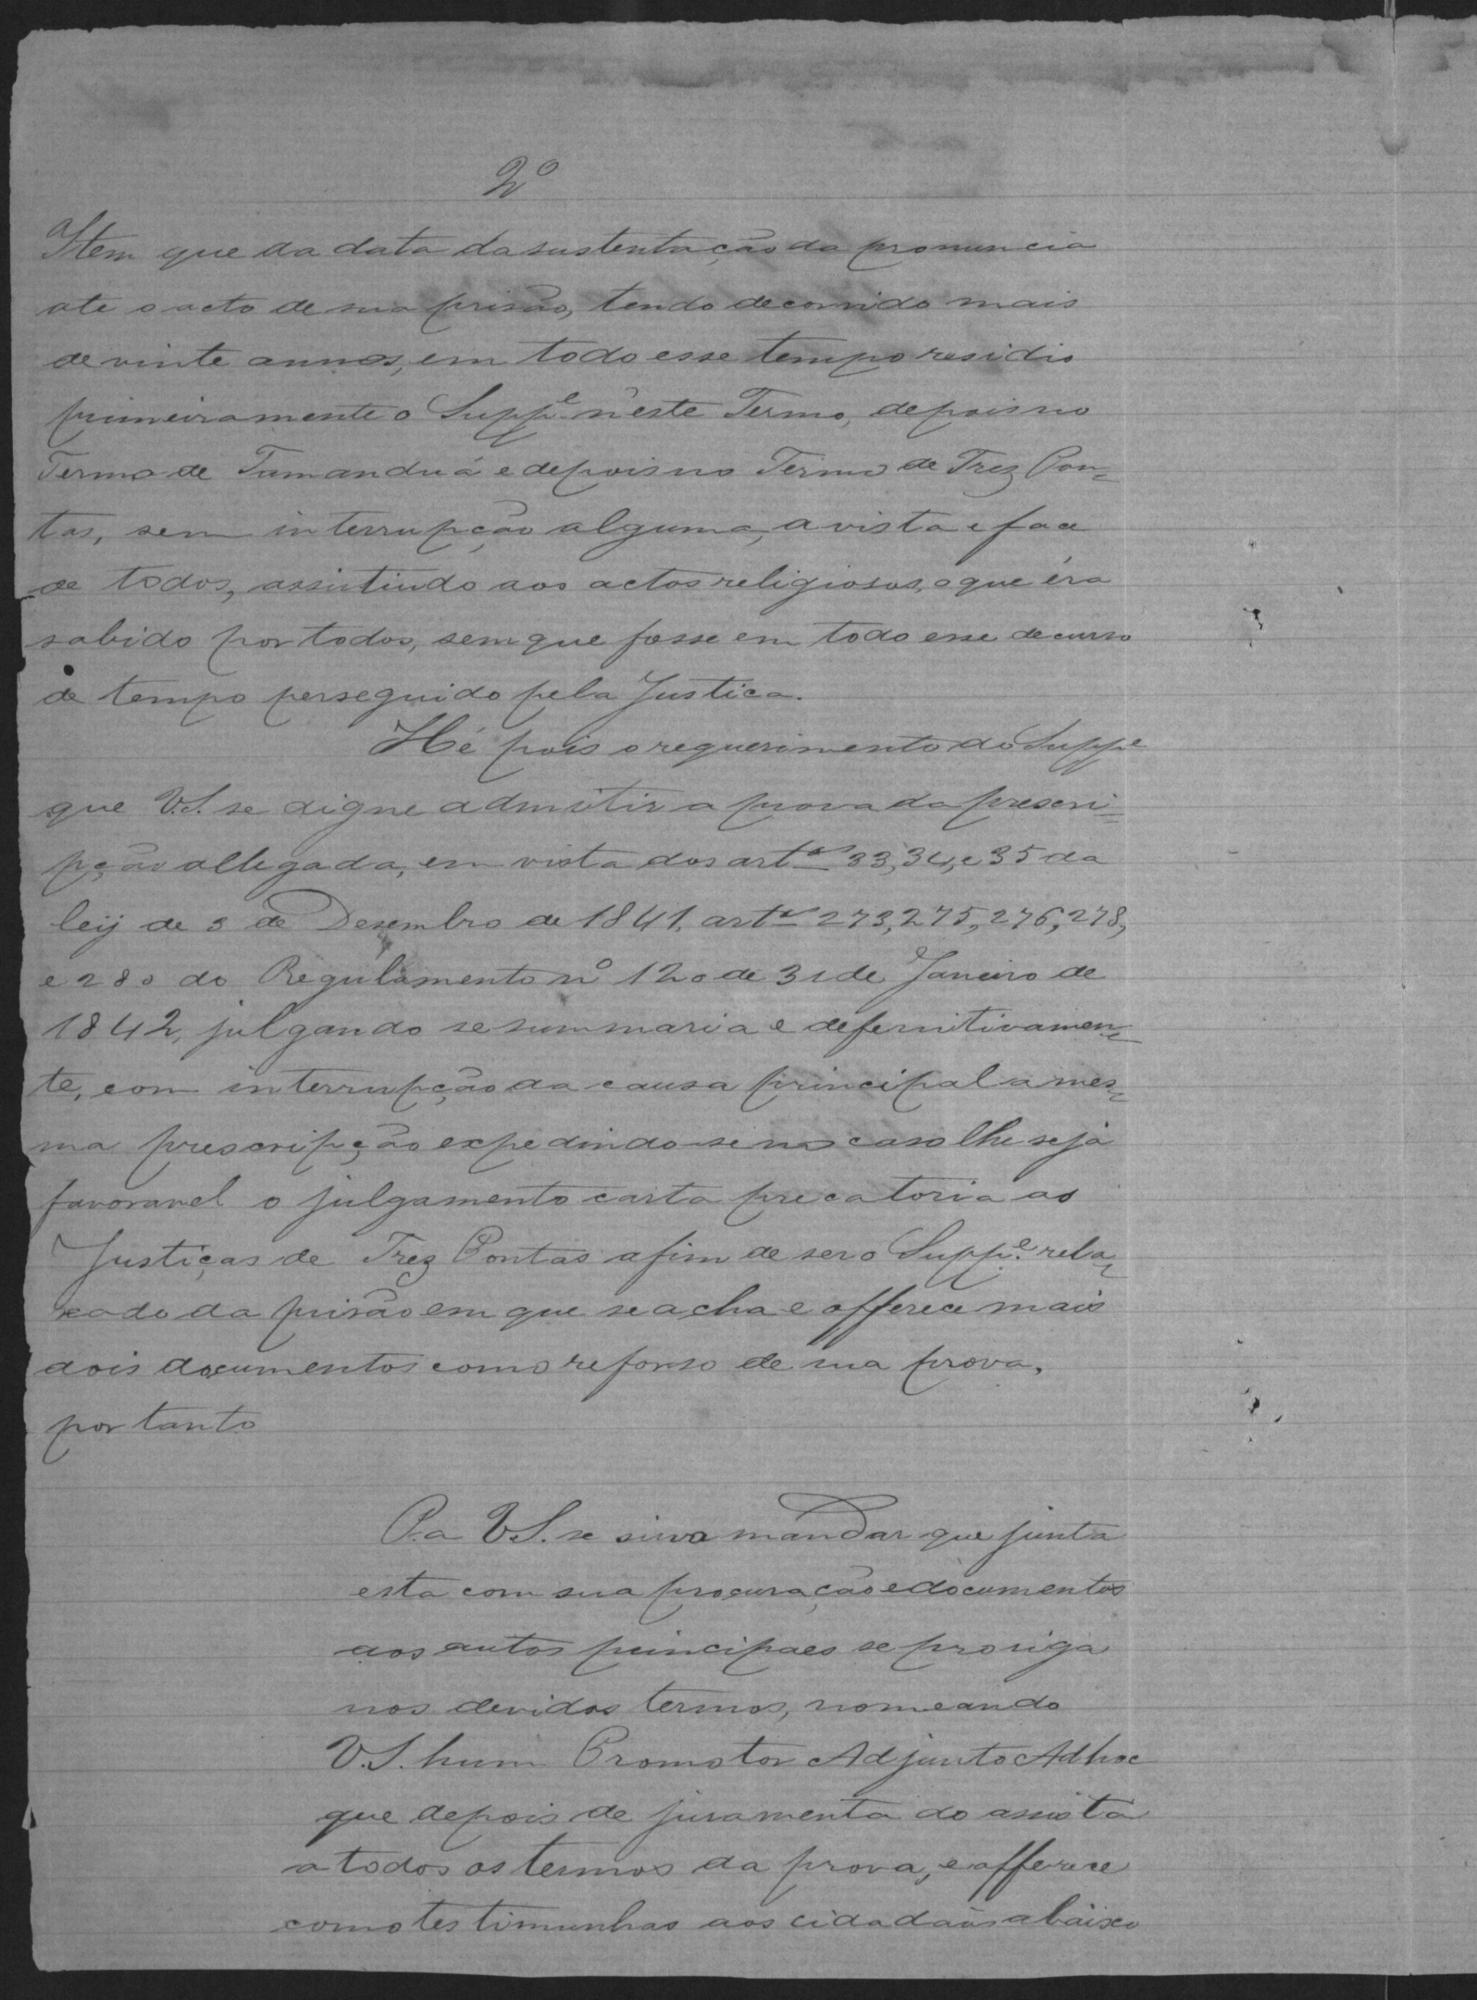 2º
Item que da data da sustentação da pronuncia
ate o acto de sua prisão, tendo decorrido mais
de vinte annos, em todo esse tempo residio
primeiramente o Suppe n'este Termo, depois no
Termo de Tamanduá e depois no Termo de Trez Pon-
tas, sem interrupção alguma, a vista e face
de todos, assistindo aos actos religiosos, o que éra
sabido por todos, sem que fosse em todo esse decurso
de tempo perseguido pela Justica.
Hé pois o requerimento do Suppe
que V.S. se digne admitir a prova da prescri-
pção allegada, em vista dos artos 33, 34, e 35 da
leij de 3 de Desembro de 1841, artos 273, 275, 276, 278,
e 280 do Regulamento nº 120 de 31 de Janeiro de
1842, julgando se summaria e defernitivamen-
te, com interrupção da causa principal a mes-
ma prescripção expedindo-se no caso lhe seja
favoravel o julgamento carta precatoria as
Justiças de Trez Pontas afim de ser o Suppe. rela-
xado da prisão em que se acha e offerece mais
dois documentos como reforso de sua prova,
por tanto
P. a V.S. se sirva mandar que junta
esta com sua procuração e documentos
aos autos principaes se prosiga
nos devidos termos, nomeando
V.S. hum Promotor Adjunto Adhoc
que depois de juramentado assista
a todos os termos da prova, e offerece
como testimunhas aos cidadaõs abaixo